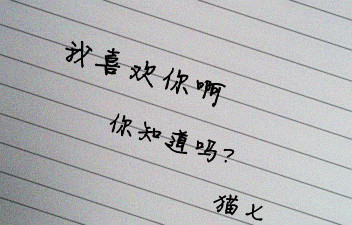 我喜欢你啊
你知道吗?
猫七